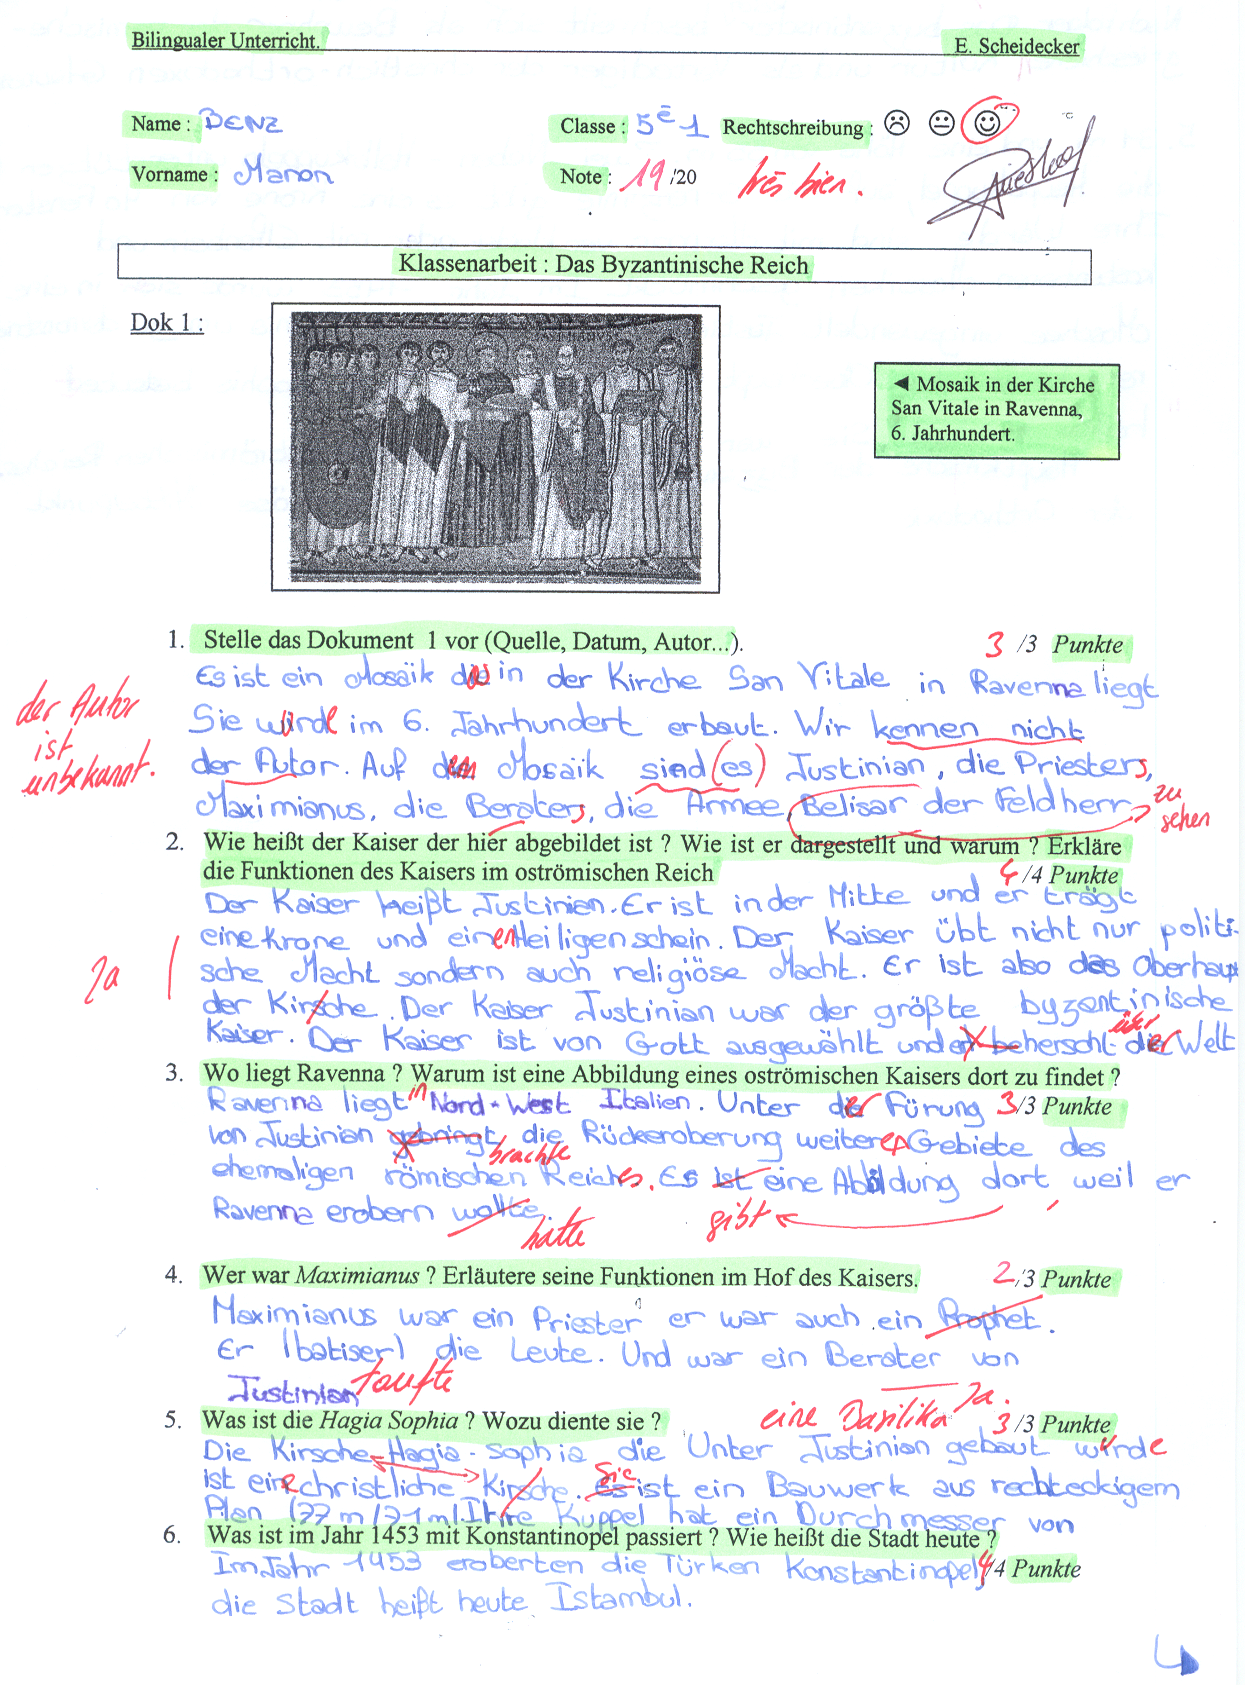 Bilingualer Unterricht. E. Scheidecker
Name : BENZ Classe : 5è 1 Rechtschreibung :
Vorname : Manon Note : 19 /20 très bien.
Klassenarbeit : Das Byzantinische Reich
Dok 1 :
◄ Mosaik in der Kirche
San Vitale in Ravenna,
6. Jahrhundert.
1. Stelle das Dokument 1 vor (Quelle, Datum, Autor...). 3 /3 Punkte
Es ist ein Mosaik in der Kirche San Vitale in Ravenna liegt
Sie wurde im 6. Jahrhundert erbaut. Wir kennen nicht
der Autor. Auf dem Mosaik sind (es) Justinian, die Priesters,
Maximianus, die Beraters, die Armee, Belisar der Feldherr zu sehen
der Autor
ist
unbekannt.
2. Wie heißt der Kaiser der hier abgebildet ist ? Wie ist er dargestellt und warum ? Erkläre
die Funktionen des Kaisers im oströmischen Reich 4 /4 Punkte
Der Kaiser heißt Justinian. Er ist in der Mitte und er trägt
eine Krone und einen Heiligenschein. Der Kaiser übt nicht nur politi-
sche Macht sondern auch religiöse Macht. Er ist also das Oberhaupt
der Kirsche. Der Kaiser Justinian war der größte byzantinische
Kaiser. Der Kaiser ist von Gott ausgewählt und er beherscht über die Welt
Ja
3. Wo liegt Ravenna ? Warum ist eine Abbildung eines oströmischen Kaisers dort zu findet ?
Ravenna liegt in Nord-West Italien. Unter der Fürung 3/3 Punkte
von Justinian gebringt brachte die Rückeroberung weiteren Gebiete des
ehemaligen römischen Reiches. Es ist eine Abbildung dort weil er
Ravenna erobern wollte. hatte gibt
4. Wer war Maximianus ? Erläutere seine Funktionen im Hof des Kaisers. 2/3 Punkte
Maximianus war ein Priester er war auch ein Prophet.
Er (batiser) die Leute. Und war ein Berater von
Justinian taufte
5. Was ist die Hagia Sophia ? Wozu diente sie ? eine Basilika Ja. 3/3 Punkte
Die Kirsche Hagia-Sophia die Unter Justinian gebaut wurde
ist eine christliche Kirsche. Es Sie ist ein Bauwerk aus rechteckigem
Plan (77 m/71 m). Ihre Kuppel hat ein Durchmesser von
6. Was ist im Jahr 1453 mit Konstantinopel passiert ? Wie heißt die Stadt heute ?
Im Jahr 1453 eroberten die Türken Konstantinopel, 4/4 Punkte
die Stadt heißt heute Istambul.